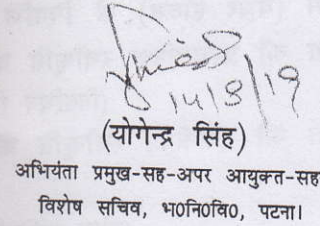 14/8/19
(योगेन्द्र सिंह)
अभियंता प्रमुख-सह-अपर आयुक्त-सह
विशेष सचिव, भ0नि0वि0, पटना।